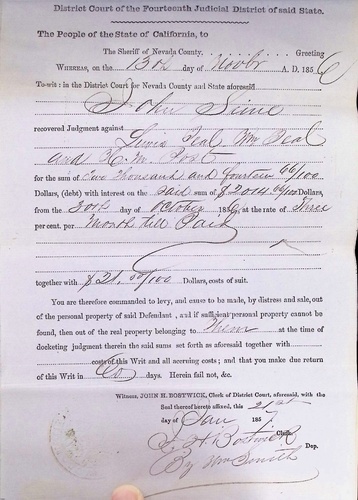 District Court of the Fourteenth Judicial District of said State.
The People of the State of California, to
The Sheriff of Nevada County. Greeting
WHEREAS, on the 13th day of Novbr A. D. 1856
To-wit: in the District Court for Nevada County and State aforesaid
John Sime
recovered Judgment against
Lewis Teal, Wm Teal
and H. M. Post
for the sum of Two thousand and fourteen 66/100
Dollars, (debt) with interest on the said sum of $2014 66/100 Dollars,
from the 30th day of October 1856 at the rate of Three
per cent. per Month till Paid
together with $21. 50/100 Dollars, costs of suit.
You are therefore commanded to levy, and cause to be made, by distress and sale, out
of the personal property of said Defendant, and if sufficient personal property cannot be
found, then out of the real property belonging to Them at the time of
docketing judgment therein the said sums set forth as aforesaid together with
costs of this Writ and all accruing costs; and that you make due return
of this Writ in 60 days. Herein fail not, &c.
Witness, JOHN H. BOSTWICK, Clerk of District Court, aforesaid, with the
Seal thereof hereto affixed, this 21st
day of Jan 1857
J. H. Bostwick Clerk.
By Wm Smith Dep.